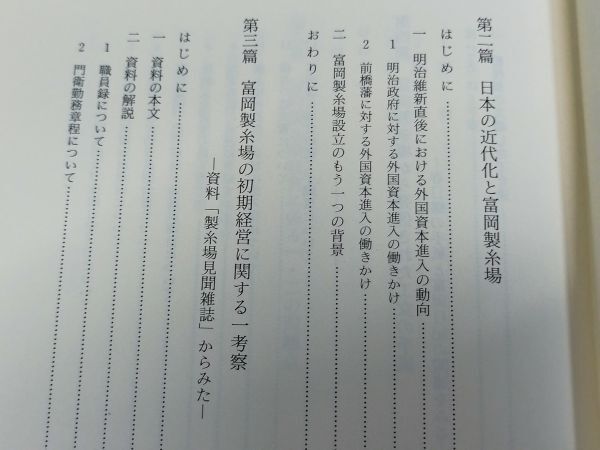 第二篇 日本の近代化と富岡製糸場
はじめに
一 明治維新直後における外国資本進入の動向
1 明治政府に対する外国資本進入の働きかけ
2 前橋藩に対する外国資本進入の働きかけ
二 富岡製糸場設立のもう一つの背景
おわりに
第三篇 富岡製糸場の初期経営に関する一考察
―資料「製糸場見聞雑誌」からみた―
はじめに
一 資料の本文
二 資料の解説
1 職員録について
2 門衛勤務章程について